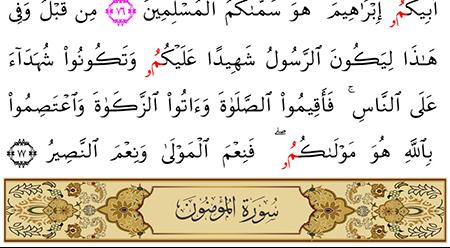 أَبِيكُمُۥ إِبۡرَٰهِيمَۚ هُوَ سَمَّىٰكُمُ ٱلۡمُسۡلِمِينَ ۝٧٦ مِن قَبۡلُ وَفِي
هَٰذَا لِيَكُونَ ٱلرَّسُولُ شَهِيدًا عَلَيۡكُمُۥ وَتَكُونُواْ شُهَدَآءَ
عَلَى ٱلنَّاسِۚ فَأَقِيمُواْ ٱلصَّلَوٰةَ وَءَاتُواْ ٱلزَّكَوٰةَ وَٱعۡتَصِمُواْ
بِٱللَّهِ هُوَ مَوۡلَىٰكُمُۥۖ فَنِعۡمَ ٱلۡمَوۡلَىٰ وَنِعۡمَ ٱلنَّصِيرُ ۝٧٧
سُورَةُ المُؤمِنُون